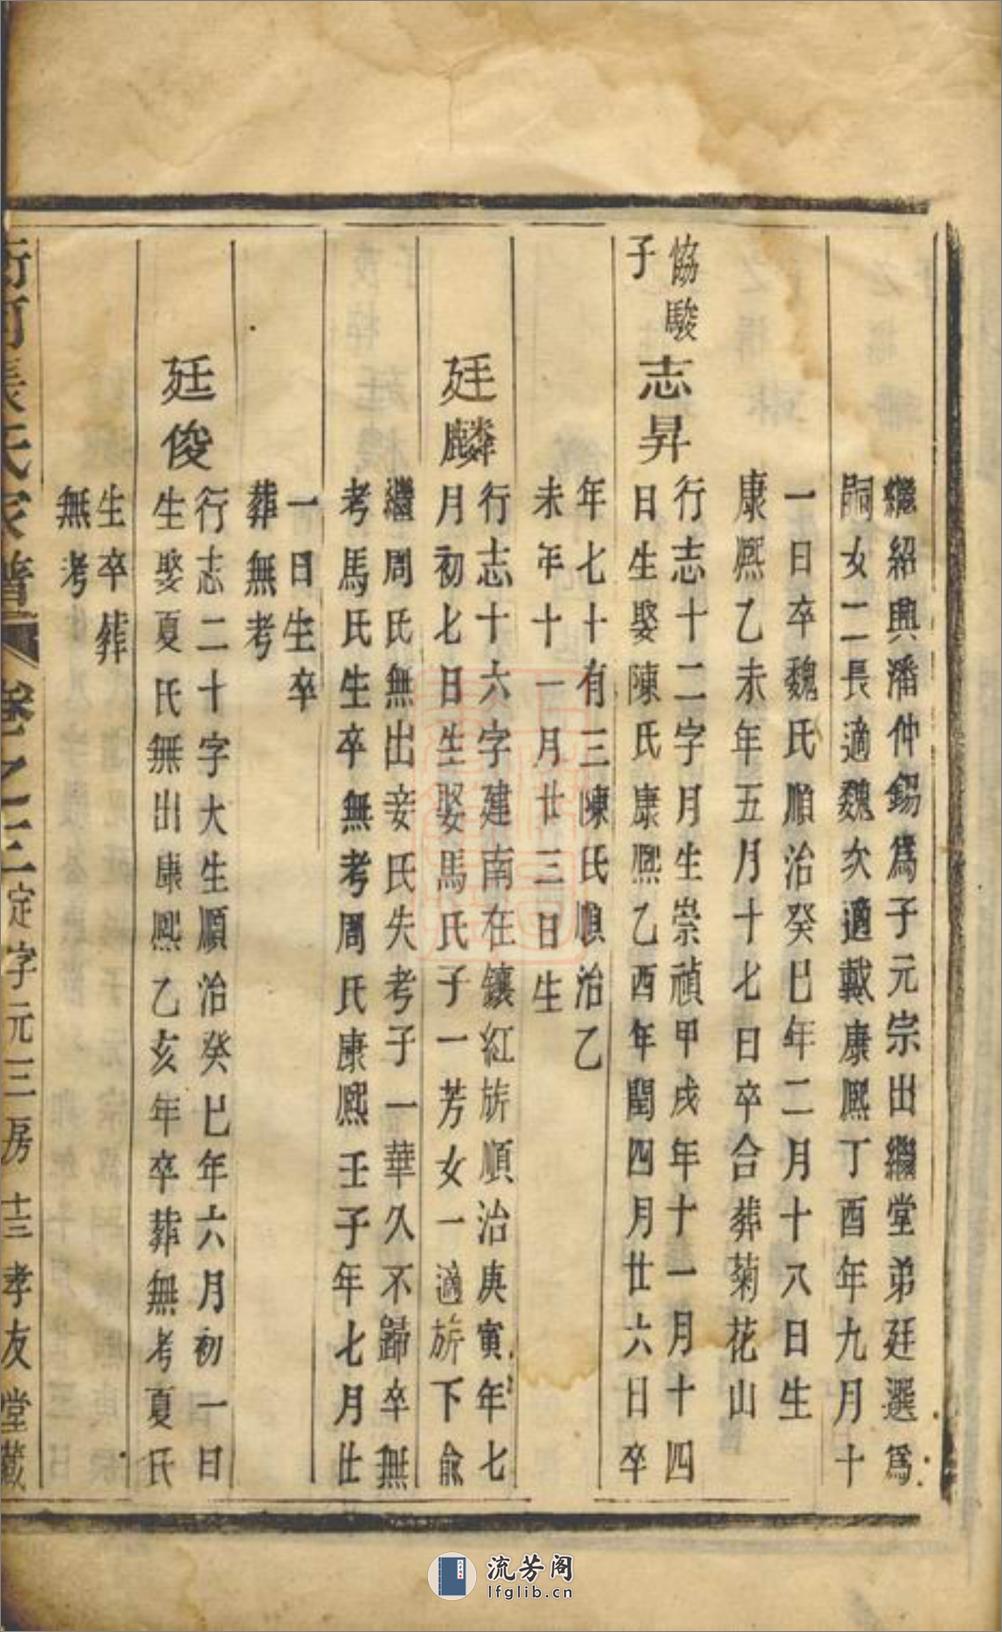 繼紹興潘仲錫爲子元宗出繼堂弟廷選爲
嗣女二長適魏次適戴康熙丁酉年九月十
一日卒魏氏順治癸巳年二月十八日生
康熙乙未年五月十七日卒合葬菊花山
協駿
子
志昇
行志十二字月生崇禎甲戌年十一月十四
日生娶陳氏康熙乙酉年閏四月廿六日卒
年七十有三陳氏順治乙
未年十一月廿三日生
廷麟
行志十六字建南在鑲紅旂順治庚寅年七
月初七日生娶馬氏子一芳女一適旂下俞
繼周氏無出妾氏失考子一華久不歸卒無
考馬氏生卒無考周氏康熙壬子年七月廿
一日生卒
葬無考
廷俊
行志二十字大生順治癸巳年六月初一日
生娶夏氏無出康熙乙亥年卒葬無考夏氏
生卒葬
無考
張氏家譜 卷之三 定字元三房 十三 孝友堂藏
流芳阁
lfglib.cn